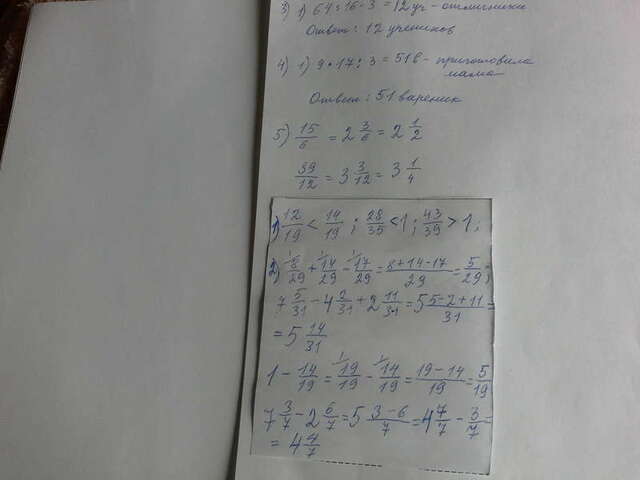 3) 1) 64:16·3=12уч - отличники
Ответ: 12 учеников
4) 1) 9·17:3=51в - приготовила
мама
Ответ: 51 вареник
5) 15/6 = 2 3/6 = 2 1/2
39/12 = 3 3/12 = 3 1/4
1) 12/19 < 14/19; 28/35 < 1; 43/39 > 1;
2) 8/29 + 14/29 - 17/29 = 8+14-17/29 = 5/29;
7 5/31 - 4 2/31 + 2 11/31 = 5 5-2+11/31 =
= 5 14/31
1 - 14/19 = 19/19 - 14/19 = 19-14/19 = 5/19
7 3/7 - 2 6/7 = 5 3-6/7 = 4 7/7 - 3/7 =
= 4 4/7